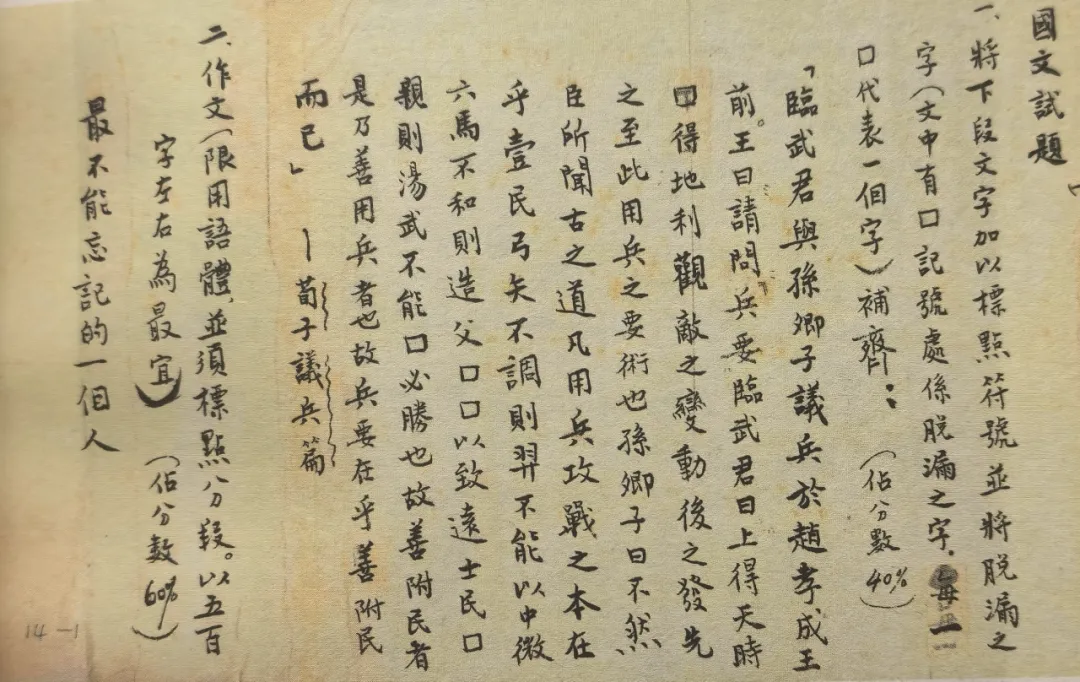 國文試題
一、將下段文字加以標點符號並將脫漏之
字(文中有口記號處係脫漏之字.每一
口代表一個字)補齊：(佔分數40%)
「臨武君與孫卿子議兵於趙孝成王
前。王曰請問兵要臨武君曰上得天時
口得地利觀敵之變動後之發先
之至此用兵之要術也孫卿子曰不然
臣所聞古之道凡用兵攻戰之本在
乎壹民弓矢不調則羿不能以中微
六馬不和則造父口口以致遠士民口
親則湯武不能口必勝也故善附民者
是乃善用兵者也故兵要在乎善附民
而已」 —荀子議兵篇
二、作文(限用語體,並須標點分段。以五百
字左右為最宜)(佔分數60%)
最不能忘記的一個人
14-1